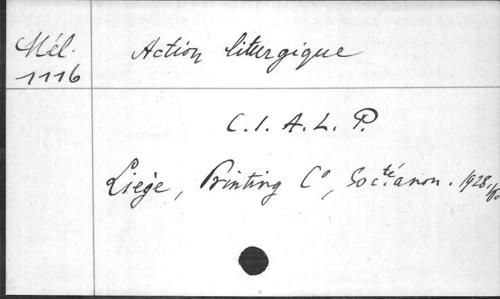 Mél.
1116
Action liturgique
C.I.A.L.P.
Liège, Printing Cº, Socté. anon. 1928.